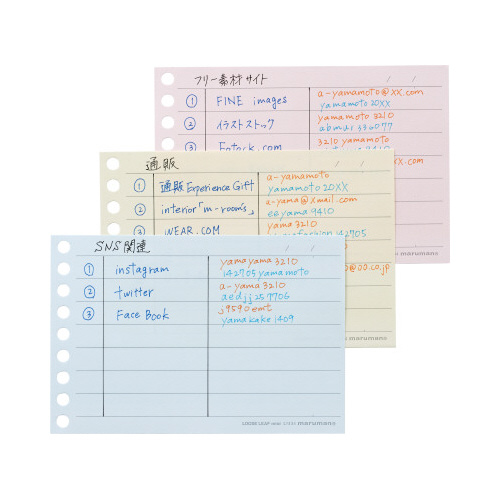 フリー素材サイト
① FINE images
a-yamamoto@XX.com
yamamoto 20XX
② イラストストック
yamamoto 3210
③ Fotock.com
3210 yamamoto
marumano
通販
① 通販Experience Gift
a-yamamoto
yamamoto 20XX
② interior「m-room's」
a-yama@Xmail.com
eeyama 9410
WEAR.COM
yama 3210
marumano
SNS関連
① instagram
yamayama 3210
142705 yamamoto
② twitter
a-yama 3210
aedjj257706
③ Face Book
j9590emt
yamakake 1409
LOOSE LEAF mini marumano